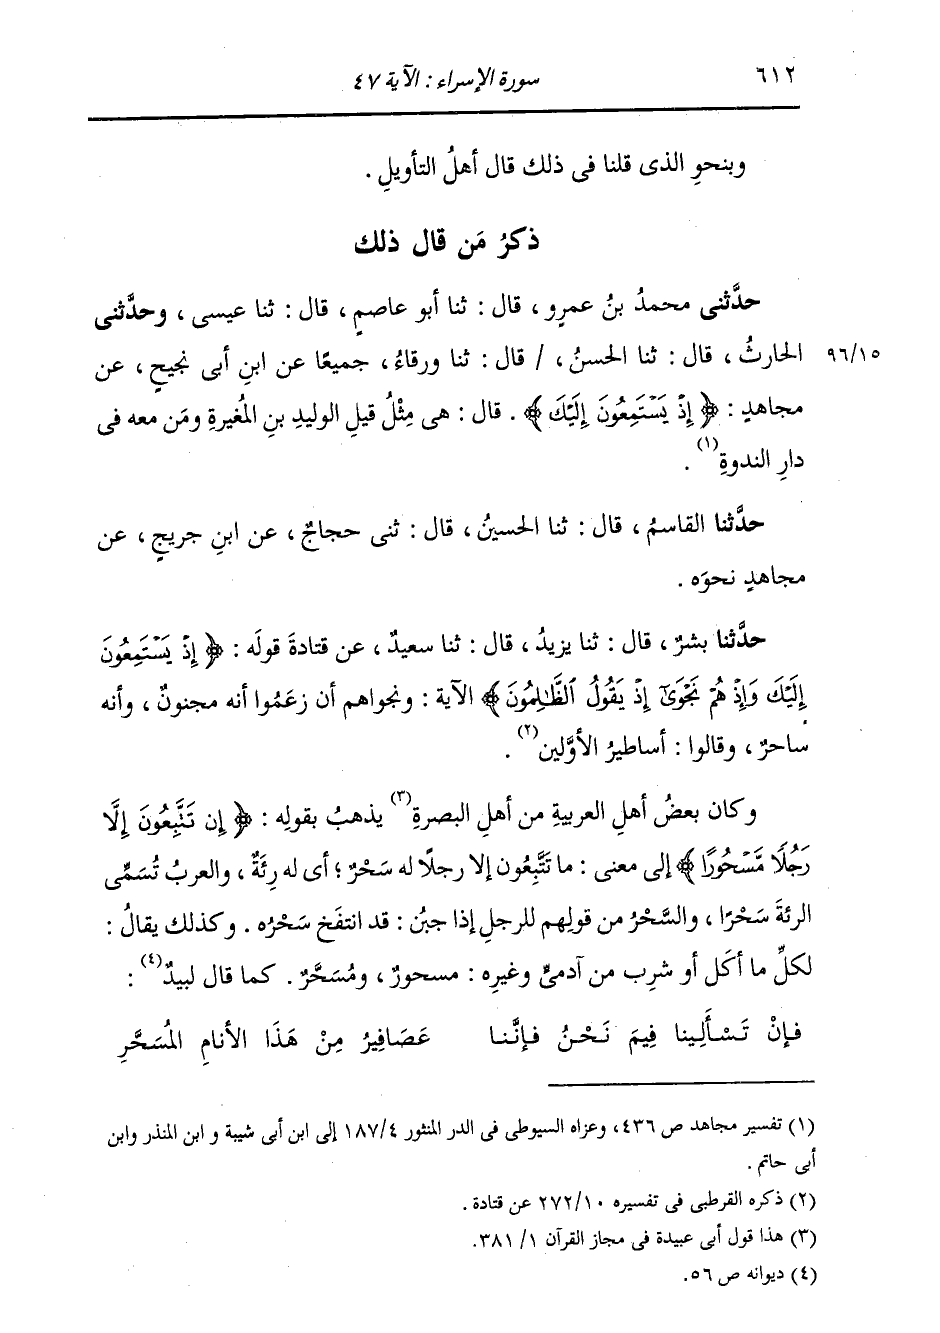 ٦١٢ سورة الإسراء : الآية ٤٧
وبنحوِ الذى قلنا فى ذلك قال أهلُ التأويلِ .
ذكرُ مَن قال ذلك
حدَّثنى محمدُ بنُ عمرٍو ، قال : ثنا أبو عاصمٍ ، قال : ثنا عيسى ، وحدَّثنى
٩٦/١٥ الحارثُ ، قال : ثنا الحسنُ ، / قال : ثنا ورقاءُ ، جميعًا عن ابنِ أبى نجيحٍ ، عن
مجاهدٍ : ﴿ إِذْ يَسْتَمِعُونَ إِلَيْكَ ﴾ . قال : هى مِثْلُ قيلِ الوليدِ بنِ المُغيرةِ ومَن معه فى
دارِ الندوةِ(١) .
حدَّثنا القاسمُ ، قال : ثنا الحسينُ ، قال : ثنى حجاجٌ ، عن ابنِ جريجٍ ، عن
مجاهدٍ نحوَه .
حدَّثنا بشرٌ ، قال : ثنا يزيدُ ، قال : ثنا سعيدٌ ، عن قتادةَ قولَه : ﴿ إِذْ يَسْتَمِعُونَ
إِلَيْكَ وَإِذْ هُمْ نَجْوَىٰٓ إِذْ يَقُولُ ٱلظَّٰلِمُونَ ﴾ الآية : ونجواهم أن زعَمُوا أنه مجنونٌ ، وأنه
ساحرٌ ، وقالوا : أساطيرُ الأوَّلين(٢) .
وكان بعضُ أهلِ العربيةِ من أهلِ البصرةِ(٣) يذهبُ بقولِه : ﴿ إِن تَتَّبِعُونَ إِلَّا
رَجُلًا مَّسْحُورًا ﴾ إلى معنى : ما تَتَّبِعُون إلا رجلًا له سَحْرٌ ؛ أى له رِئَةٌ ، والعربُ تُسَمِّى
الرئةَ سَحْرًا ، والسَّحْرُ من قولِهم للرجلِ إذا جبُن : قد انتفَخ سَحْرُه . وكذلك يقالُ :
لكلِّ ما أكَل أو شرِب من آدمىٍّ وغيرِه : مسحورٌ ، ومُسَحَّرٌ . كما قال لبيدٌ(٤) :
فإنْ تَسْأَلِينا فِيمَ نَحْنُ فإنَّنا عَصَافِيرُ مِنْ هَذَا الأنامِ المُسَحَّرِ
(١) تفسير مجاهد ص ٤٣٦، وعزاه السيوطى فى الدر المنثور ١٨٧/٤ إلى ابن أبى شيبة و ابن المنذر وابن
أبى حاتم .
(٢) ذكره القرطبى فى تفسيره ٢٧٢/١٠ عن قتادة .
(٣) هذا قول أبى عبيدة فى مجاز القرآن ١/ ٣٨١.
(٤) ديوانه ص ٥٦.